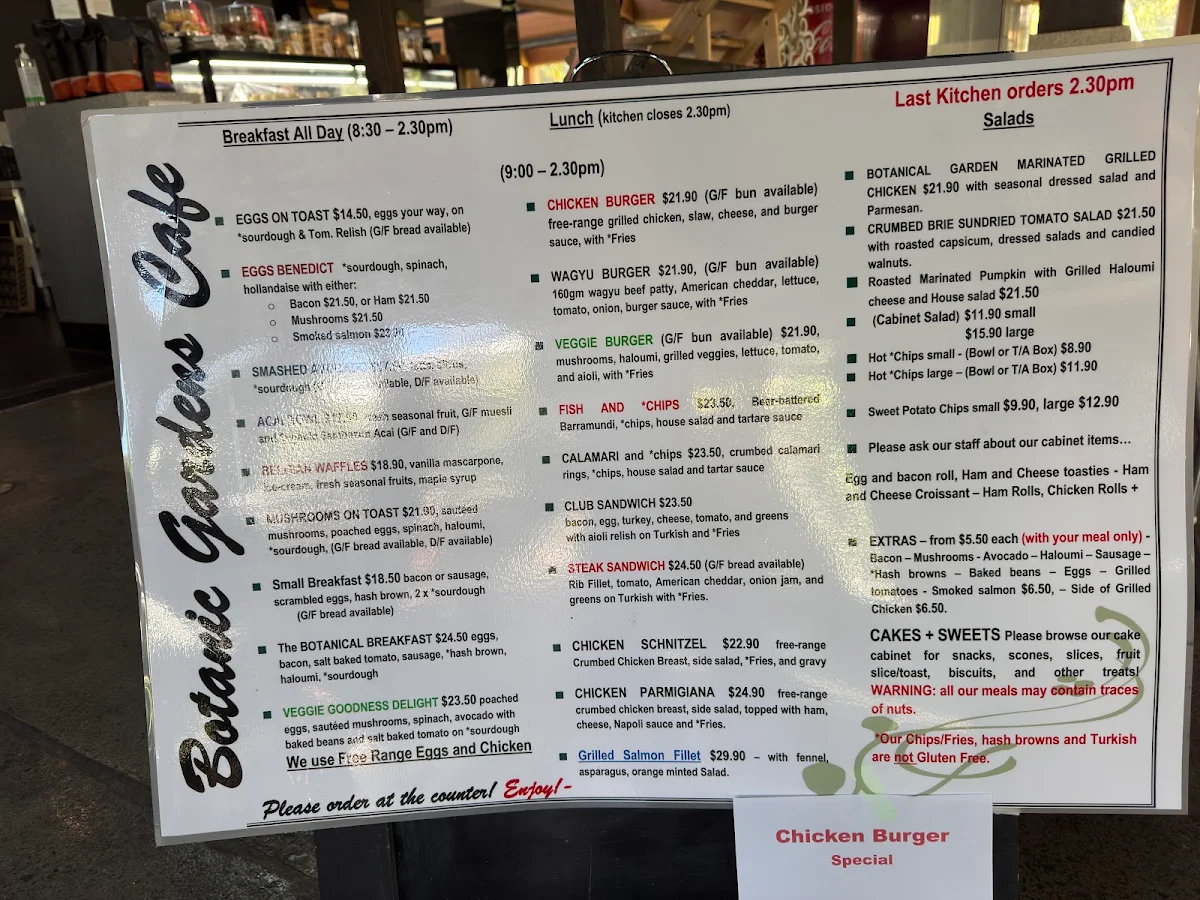 Botanic Gardens Cafe
Breakfast All Day (8:30 – 2.30pm)
EGGS ON TOAST $14.50, eggs your way, on
*sourdough & Tom. Relish (G/F bread available)
EGGS BENEDICT *sourdough, spinach,
hollandaise with either:
Bacon $21.50, or Ham $21.50
Mushrooms $21.50
Smoked salmon
SMASHED
*sourdough available, D/F available)
ACAI BOWL fresh seasonal fruit, G/F muesli
and Acai (G/F and D/F)
BELGIAN WAFFLES $18.90, vanilla mascarpone,
ice-cream, fresh seasonal fruits, maple syrup
MUSHROOMS ON TOAST $21.90, sautéed
mushrooms, poached eggs, spinach, haloumi,
*sourdough, (G/F bread available, D/F available)
Small Breakfast $18.50 bacon or sausage,
scrambled eggs, hash brown, 2 x *sourdough
(G/F bread available)
The BOTANICAL BREAKFAST $24.50 eggs,
bacon, salt baked tomato, sausage, *hash brown,
haloumi, *sourdough
VEGGIE GOODNESS DELIGHT $23.50 poached
eggs, sautéed mushrooms, spinach, avocado with
baked beans and salt baked tomato on *sourdough
We use Free Range Eggs and Chicken
Please order at the counter! Enjoy!-
Lunch (kitchen closes 2.30pm)
(9:00 – 2.30pm)
CHICKEN BURGER $21.90 (G/F bun available)
free-range grilled chicken, slaw, cheese, and burger
sauce, with *Fries
WAGYU BURGER $21.90, (G/F bun available)
160gm wagyu beef patty, American cheddar, lettuce,
tomato, onion, burger sauce, with *Fries
VEGGIE BURGER (G/F bun available) $21.90,
mushrooms, haloumi, grilled veggies, lettuce, tomato,
and aioli, with *Fries
FISH AND *CHIPS $23.50, Beer-battered
Barramundi, *chips, house salad and tartare sauce
CALAMARI and *chips $23.50, crumbed calamari
rings, *chips, house salad and tartar sauce
CLUB SANDWICH $23.50
bacon, egg, turkey, cheese, tomato, and greens
with aioli relish on Turkish and *Fries
STEAK SANDWICH $24.50 (G/F bread available)
Rib Fillet, tomato, American cheddar, onion jam, and
greens on Turkish with *Fries.
CHICKEN SCHNITZEL $22.90 free-range
Crumbed Chicken Breast, side salad, *Fries, and gravy
CHICKEN PARMIGIANA $24.90 free-range
crumbed chicken breast, side salad, topped with ham,
cheese, Napoli sauce and *Fries.
Grilled Salmon Fillet $29.90 – with fennel,
asparagus, orange minted Salad.
Last Kitchen orders 2.30pm
Salads
BOTANICAL GARDEN MARINATED GRILLED
CHICKEN $21.90 with seasonal dressed salad and
Parmesan.
CRUMBED BRIE SUNDRIED TOMATO SALAD $21.50
with roasted capsicum, dressed salads and candied
walnuts.
Roasted Marinated Pumpkin with Grilled Haloumi
cheese and House salad $21.50
(Cabinet Salad) $11.90 small
$15.90 large
Hot *Chips small - (Bowl or T/A Box) $8.90
Hot *Chips large – (Bowl or T/A Box) $11.90
Sweet Potato Chips small $9.90, large $12.90
Please ask our staff about our cabinet items…
Egg and bacon roll, Ham and Cheese toasties - Ham
and Cheese Croissant – Ham Rolls, Chicken Rolls +
EXTRAS – from $5.50 each (with your meal only) -
Bacon – Mushrooms - Avocado – Haloumi – Sausage –
*Hash browns – Baked beans – Eggs – Grilled
tomatoes - Smoked salmon $6.50, – Side of Grilled
Chicken $6.50.
CAKES + SWEETS Please browse our cake
cabinet for snacks, scones, slices, fruit
slice/toast, biscuits, and other treats!
WARNING: all our meals may contain traces
of nuts.
*Our Chips/Fries, hash browns and Turkish
are not Gluten Free.
Chicken Burger
Special